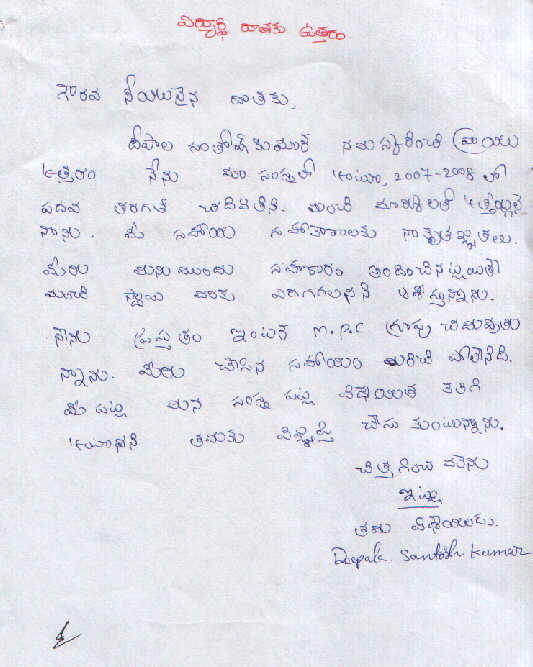 విద్యార్థి దాతకు ఉత్తరం
గౌరవ నీయులైన దాతకు,
దీపాల సంతోష్ కుమార్ నమస్కరించి వ్రాయు
ఉత్తరం నేను మా సంస్థలో 2007-2008 లో
పదవ తరగతి చదివితిని. మంచి మార్కులతో ఉత్తీర్ణుడ
నైనాను. మీ సహాయ సహకారాలకు నా కృతజ్ఞతలు.
మీరు మును ముందు సహకారం అందించినట్లయితే
మంచి స్థాయి వరకు ఎదుగగలనని ఆశిస్తున్నాను.
నేను ప్రస్తుతం ఇంటర్ M.P.C గ్రూపు చదువుతు
న్నాను. మీరు చేసిన సహాయం మరిచి పోలేనిది.
మీ పట్ల మన సంస్థ పట్ల విధేయత కలిగి
ఉంటానని తమకు విజ్ఞప్తి చేసు కుంటున్నాను.
చిత్తగించ వలెను
ఇట్లు
తమ విధేయుడు.
Deepala Santosh Kumar